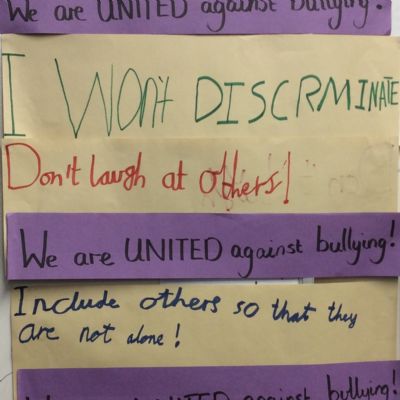 We are UNITED against bullying!
I WON't DISCRMINATE
Don't laugh at others!
We are UNITED against bullying!
Include others so that they
are not alone!
We are UNITED against bullying!